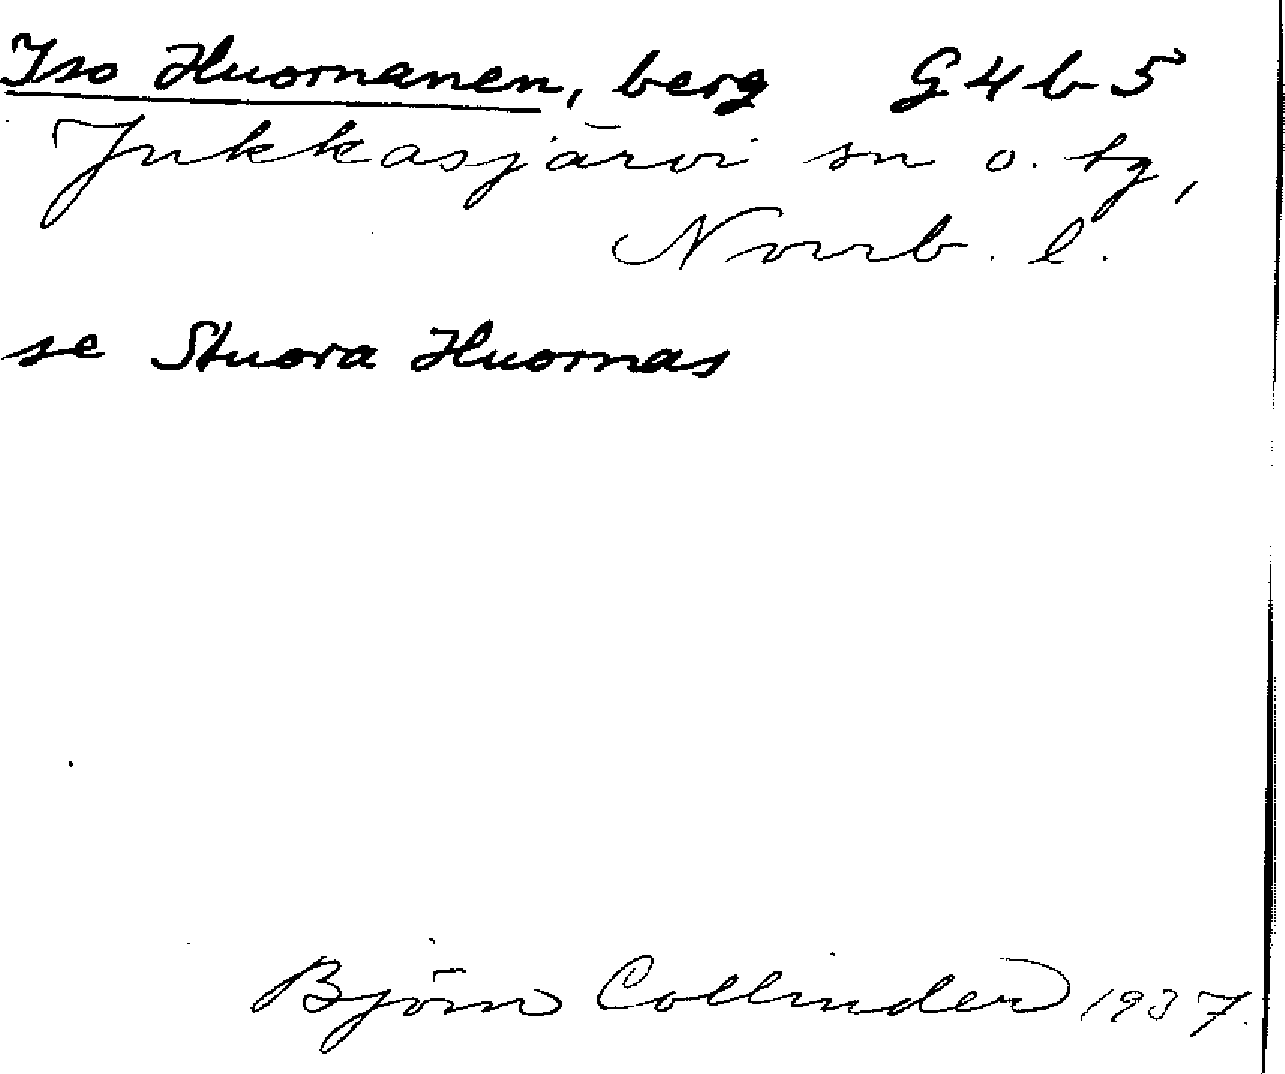 Iso Huornanen, berg G4b5
Jukkasjärvi sn o. tg,
Norrb. l.
se Stuora Huornas
Björn Collinder 1937.